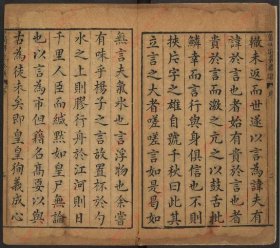 轍未返而世遂以言為諱夫有
諱於言也者始有貴於言也者
貴於言而激之亢之以鼓舌批
鱗幸而言行與身俱信也不則
挾片字之雄自號千秋曰此其
立言之大者嗟嗟言如是易如
無言夫氣水也言浮物也余嘗
有味乎楊子之言故置杯於勺
水之上則膠行舟於江河則日
千里人臣而緘默如皇尸無論
也以言為市但藉名高要以與
古為徒未矣即皇皇徇義成心